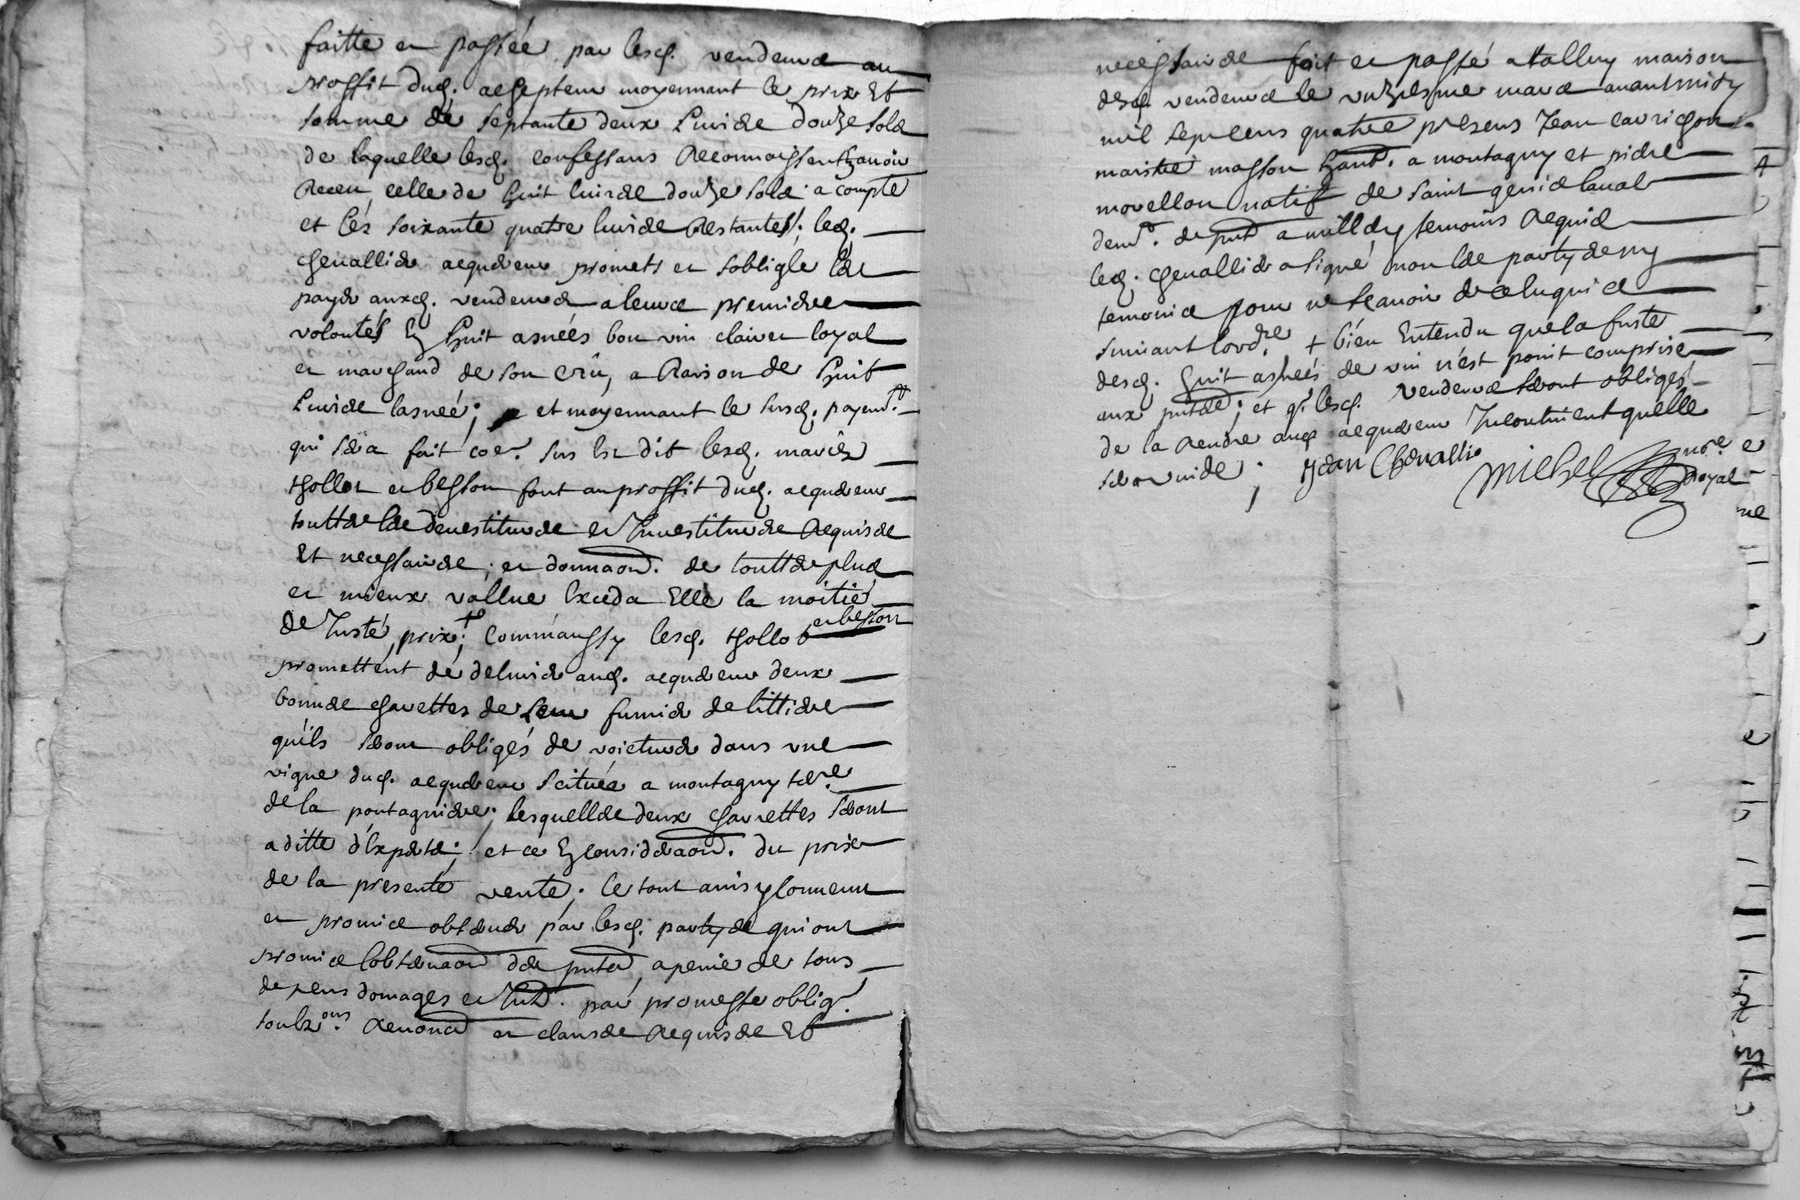 faitte et passée par lesd. vendeurs au
proffit dud. acepteur moyennant le prix Et
somme de septante deux Livres douze sols
de laquelle lesd. confessans Reconnoissent avoir
Receu celle de huit livres douze sols a compte
et les soixante quatre livres Restantes, led.
chevallier acquereur promets et soblige les
payer auxd. vendeurs a leurs premiere
volontés En huit asnées bon vin clairet loyal
et marchand de son crû, a Raison de huit
Livres lasnée; et moyennant le susd. payemt.
qui sera fait coe. sus est dit lesd. mariés
thollot et besson font au proffit dud. acquereur
touttes les devestitures et Investitures Requises
Et necessaires; et donnaon. de touttes plus
et mieux vallue Exceda Elle la moitié
de Juste prix; + Comm'aussy lesd. thollot et besson
promettent de delivrer aud. acquereur deux
bonnes charettes de Leur fumier de littiere
qu'ils seront obligés de voiturer dans une
vigne dud. acquereur scituée a montagny terre.
de la pontagniere; lesquelles deux charrettes seront
a ditte d'Experts; et ce En consideraon. du prix
de la presente vente; le tout ainsy convenu
et promis observer par lesd. partyes qui ont
promis lobservaon des pntes a peine de tous
depens domages et Intts. par promesse oblig.
soubzons. Renonca et clauses Requises Et
necessaires fait et passé a talluy maison
desd. vendeurs le unziesme mars avant midy
mil sept cens quatre presens Jean cavrichon
maistre masson hant. a montagny et piere
morellon natif de saint genis laval
demt. de pnt a milldy temoins Requis
led. chevallier a signé non les partyes ny
temoins pour ne sçavoir de ce enquis
suivant lordre. + bien Entendu que la fuste
desd. huit asnées de vin n'est point comprise
aux pntes; et q. lesd. vendeurs seront obligés
de la Rendre aud acquereur Incontinent quelle
sera vuide; Jean Chevallie
Michel nore. Royal